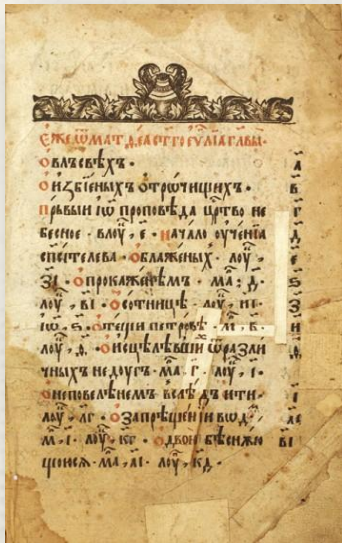 Еже ѿ мат,ѳеа ст҃го еѵ҃лїа главы·
О влъсвѣхъ· а
О избїеныхъ отрѡчищихъ· в
Прьвыи іѡ проповѣда црт҃во не г
бесное· влоу҃,е· Начало оученїа д
спс҃ителева· О блаженыхъ· лоу҃, е
зі· О прокаженѣмъ· ма҃· д· ѕ
лоу҃, ві· О сотницѣ· лоу҃, иі· з
іѡ҃, ѕ· О тещи петровѣ· м҃, в· и
лоу҃, ѳ· О исцѣлѣвшїи ѿ разли
чныхъ недоугъ· ма҃· г· лоу҃, і·
О неповелѣнемъ вслѣдъ ити· і
лоу҃, лг· О запрѣщенїи вѡд· аі
м҃· і· лоу҃· кг· О двою бѣснѹю ві
щоюся· ма҃, аі· лоу҃, кд·